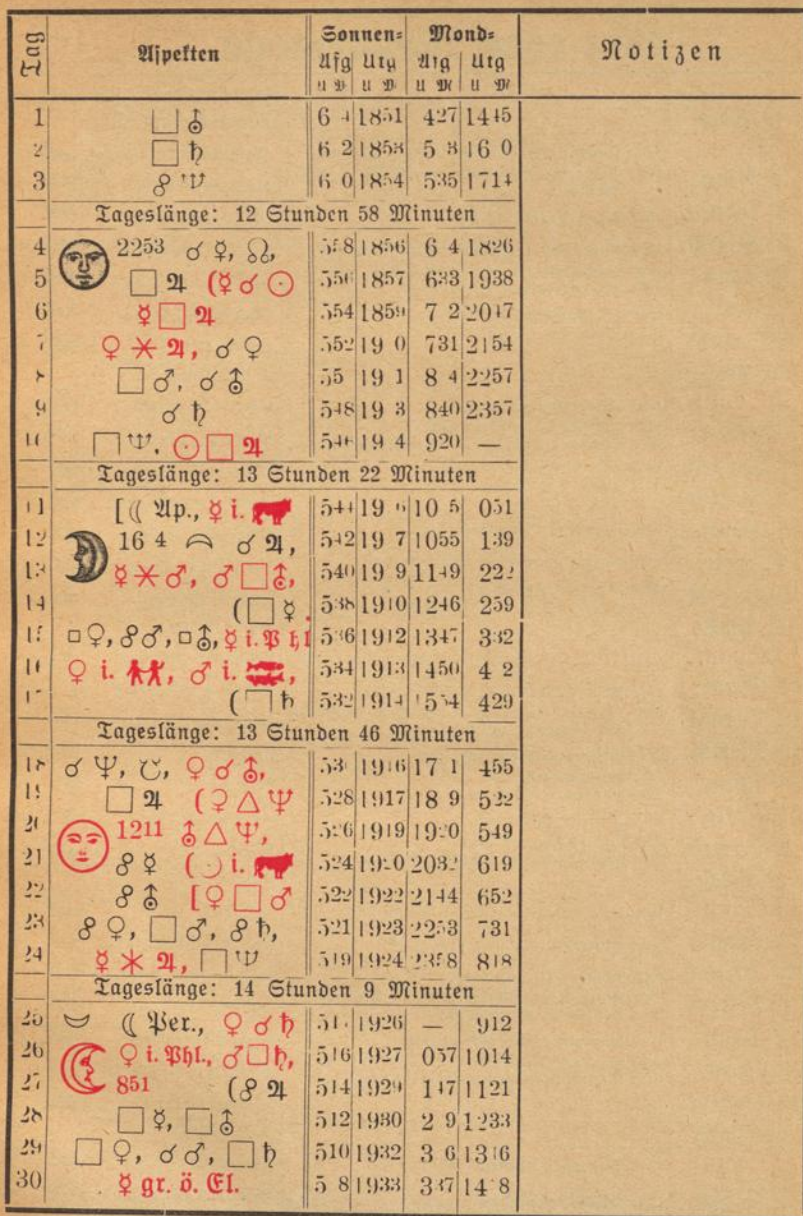 Tag Aspekten Sonnen= Mond= Notizen
Afg Utg Afg Utg
U M U M U M U M
1 □ ⛢ 6 4 1851 427 1445
2 □ ♄ 6 2 1853 5 3 16 0
3 ☍ ♆ 6 0 1854 535 1714
Tageslänge: 12 Stunden 58 Minuten
4 2253 ☌ ☿, ☊, 558 1856 6 4 1826
5 □ ♃ (☿ ☌ ☉ 556 1857 633 1938
6 ☿ □ ♃ 554 1859 7 2 2047
7 ♀ ⚹ ♃, ☌ ♀ 552 19 0 731 2154
8 □ ♂, ☌ ⛢ 55 19 1 8 4 2257
9 ☌ ♄ 548 19 3 840 2357
10 □ ♆, ☉ □ ♃ 546 19 4 920 —
Tageslänge: 13 Stunden 22 Minuten
11 [☾ Ap., ☿ i. ♉ 544 19 6 10 5 051
12 16 4 ☌ ♃, 542 19 7 1055 139
13 ☿ ⚹ ♂, ♂ □ ⛢, 540 19 9 1149 222
14 (□ ☿ 538 1910 1246 259
15 □ ♀, ☍ ♂, □ ⛢, ☿ i. P hl 536 1912 1347 332
16 ♀ i. ♊, ♂ i. ♓, 534 1913 1450 4 2
17 (□ ♄ 532 1914 1554 429
Tageslänge: 13 Stunden 46 Minuten
18 ☌ ♆, ☋, ♀ ☌ ⛢, 530 1916 17 1 455
19 □ ♃ (♀ △ ♆ 528 1917 18 9 522
20 1211 ⛢ △ ♆, 526 1919 1920 549
21 ☍ ☿ (☉ i. ♉ 524 1920 2032 619
22 ☍ ⛢ [♀ □ ♂ 522 1922 2144 652
23 ☍ ♀, □ ♂, ☍ ♄, 521 1923 2253 731
24 ☿ ⚹ ♃, □ ♆ 519 1924 2358 818
Tageslänge: 14 Stunden 9 Minuten
25 ☾ Per., ♀ ☌ ♄ 517 1926 — 912
26 ♀ i. Phl., ♂ □ ♄, 516 1927 057 1014
27 851 (☍ ♃ 514 1929 147 1121
28 □ ☿, □ ⛢ 512 1930 2 9 1233
29 □ ♀, ☌ ♂, □ ♄ 510 1932 3 6 1346
30 ☿ gr. ö. El. 5 8 1933 337 14 8